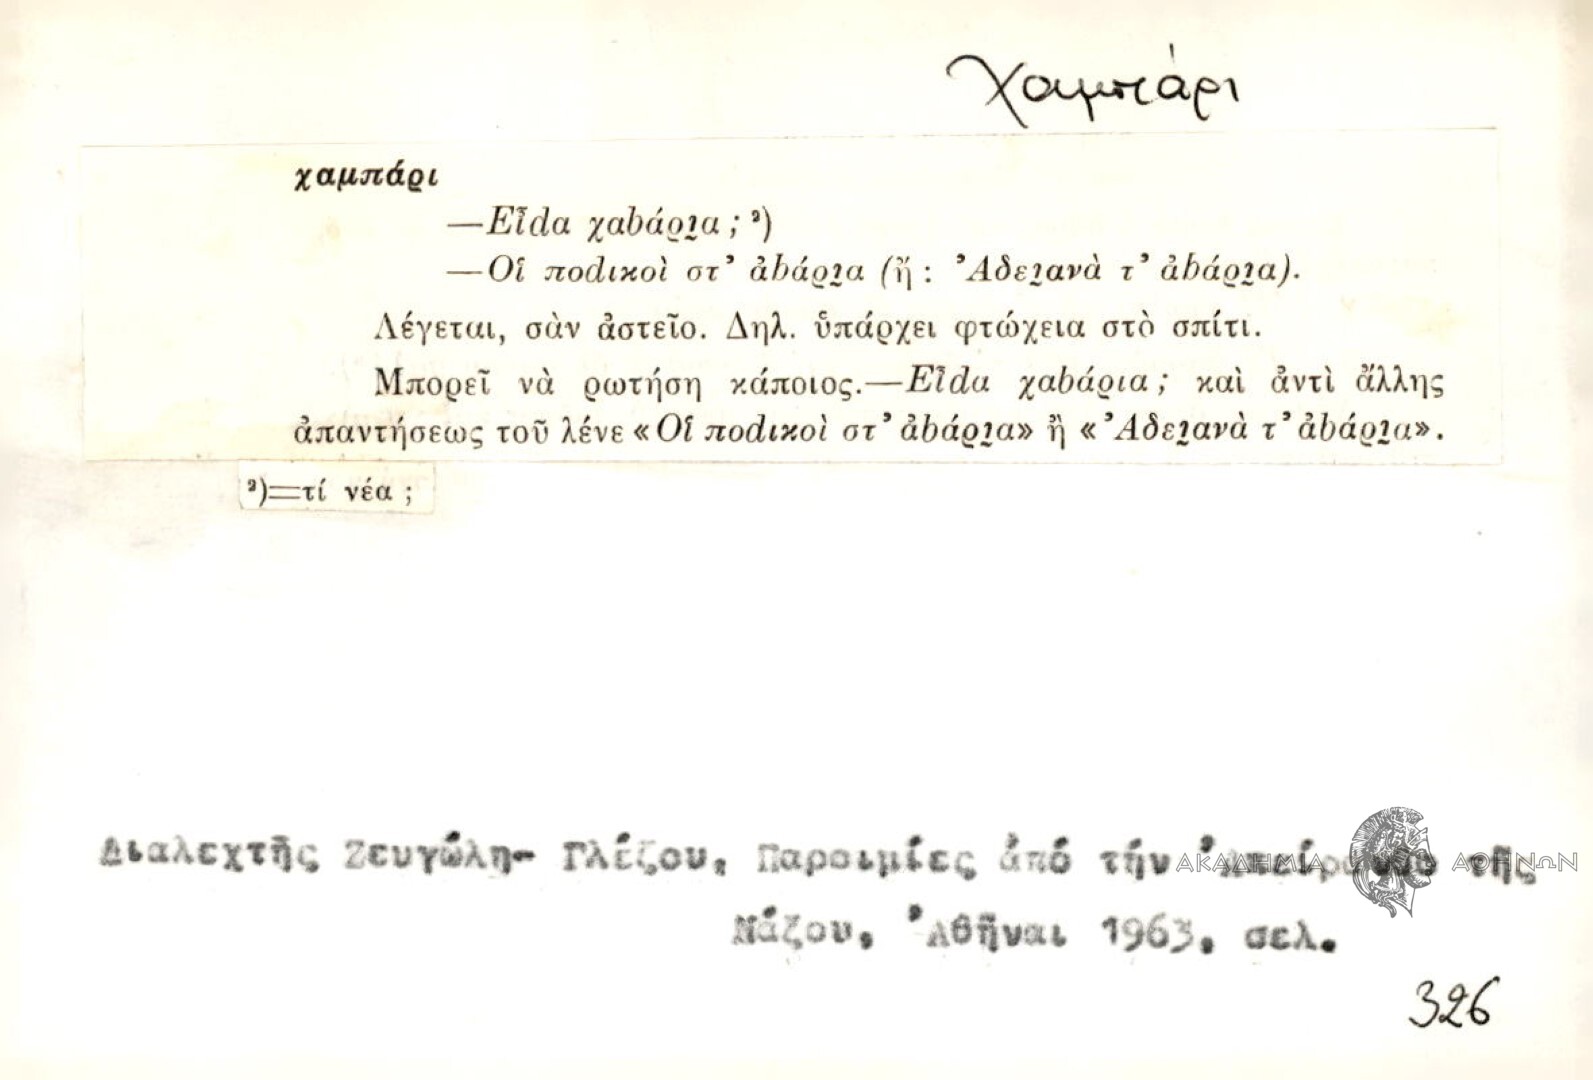 χαμπάρι
χαμπάρι
—Εἶdα χαbάρι̯α; ²)
—Οἱ ποdικοὶ στ’ ἀbάρι̯α (ἤ: ’Αδει̯ανὰ τ’ ἀbάρι̯α).
Λέγεται, σὰν ἀστεῖο. Δηλ. ὑπάρχει φτώχεια στὸ σπίτι.
Μπορεῖ νὰ ρωτήση κάποιος.—Εἶdα χαbάρια; καὶ ἀντὶ ἄλλης
ἀπαντήσεως τοῦ λένε «Οἱ ποdικοὶ στ’ ἀbάρι̯α» ἢ «’Αδει̯ανὰ τ’ ἀbάρι̯α».
²)=τί νέα;
Διαλεχτῆς Ζευγώλη- Γλέζου, Παροιμίες ἀπό τήν Ἀπείρανθο τῆς
ΑΚΑΔΗΜΙΑ ΑΘΗΝΩΝ
Νάξου, Ἀθῆναι 1963, σελ.
326